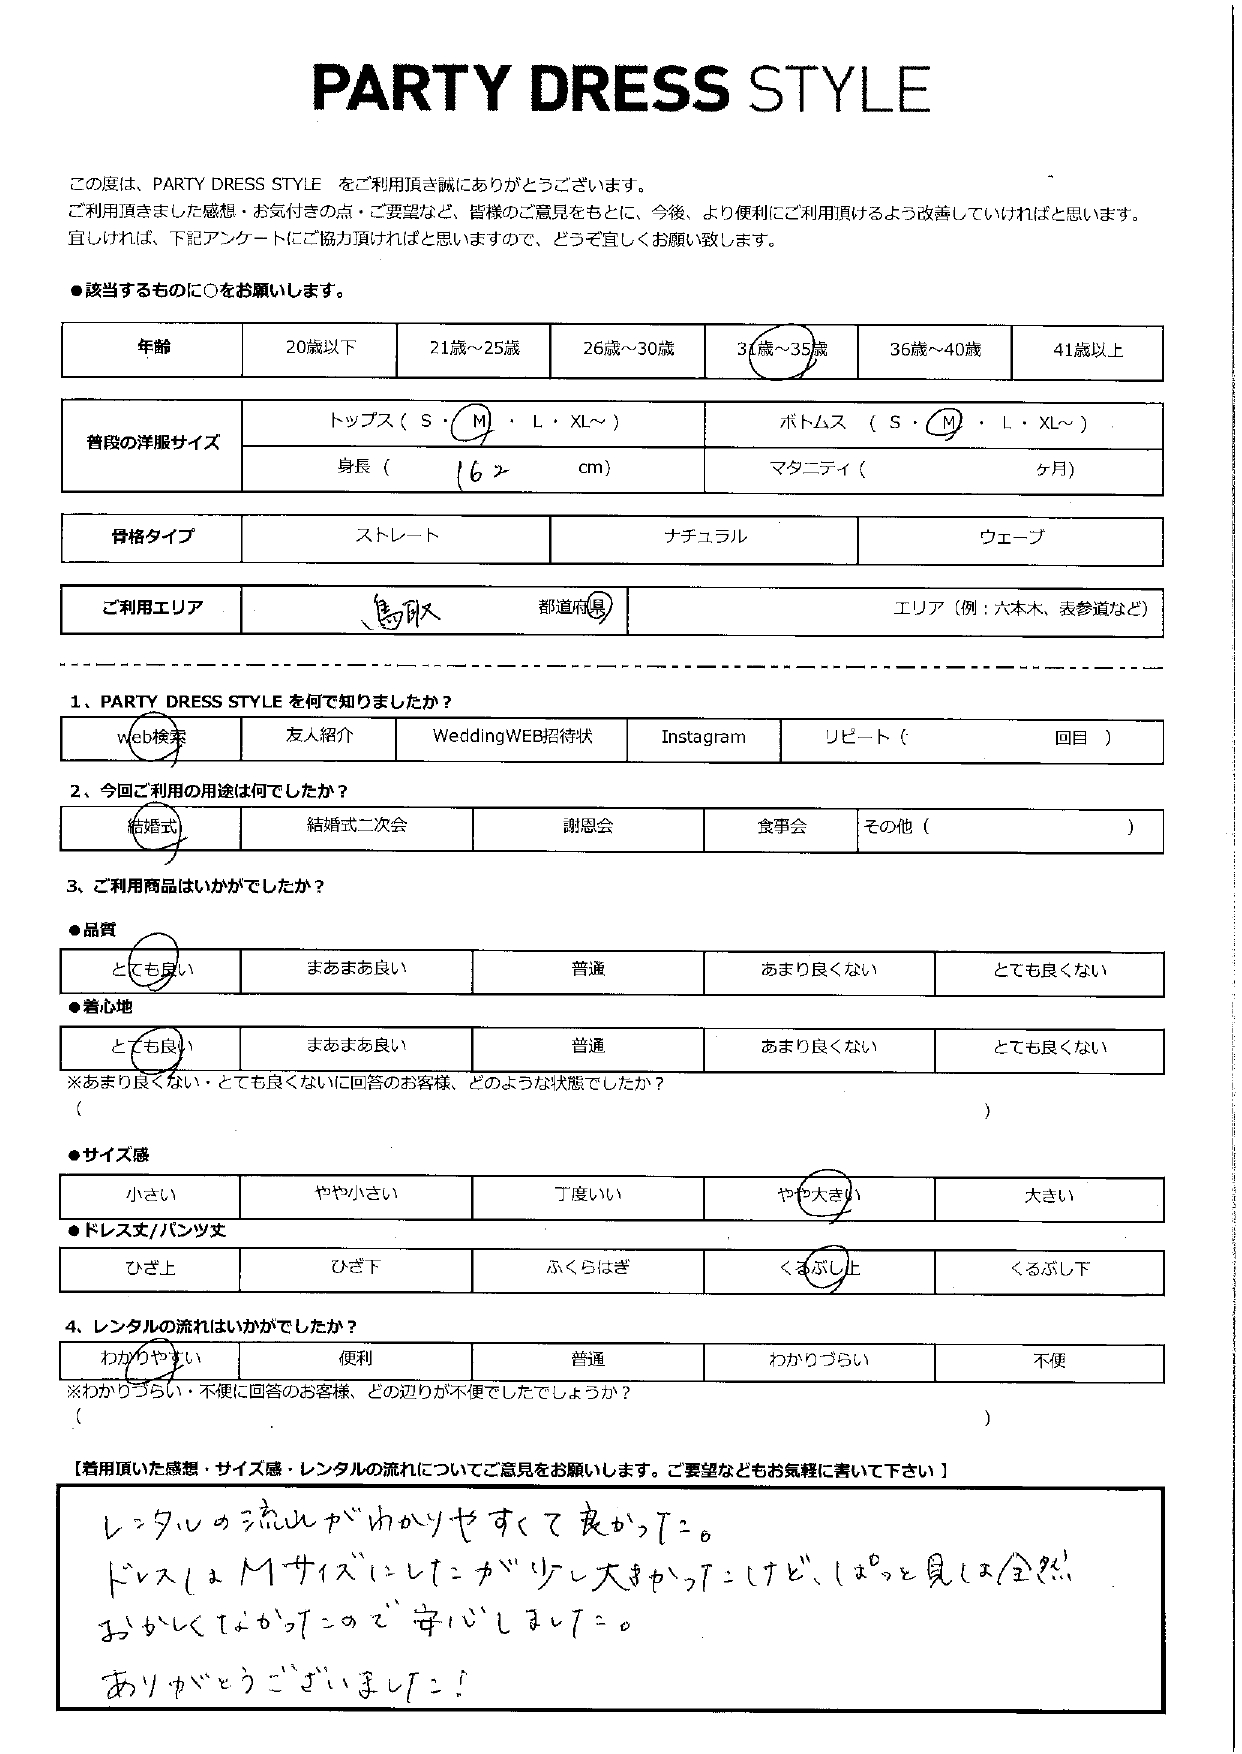 PARTY DRESS STYLE
この度は、PARTY DRESS STYLE をご利用頂き誠にありがとうございます。
ご利用頂きました感想・お気付きの点・ご要望など、皆様のご意見をもとに、今後、より便利にご利用頂けるよう改善していければと思います。
宜しければ、下記アンケートにご協力頂ければと思いますので、どうぞ宜しくお願い致します。
●該当するものに○をお願いします。
年齢 20歳以下 21歳～25歳 26歳～30歳 31歳～35歳 36歳～40歳 41歳以上
普段の洋服サイズ トップス ( S ・ M ・ L ・ XL～ ) ボトムス ( S ・ M ・ L ・ XL～ )
身長 ( 162 cm) マタニティ ( ヶ月)
骨格タイプ ストレート ナチュラル ウェーブ
ご利用エリア 鳥取 都道府県 エリア（例：六本木、表参道など）
1、PARTY DRESS STYLE を何で知りましたか？
web検索 友人紹介 WeddingWEB招待状 Instagram リピート（ 回目 ）
2、今回ご利用の用途は何でしたか？
結婚式 結婚式二次会 謝恩会 食事会 その他（ ）
3、ご利用商品はいかがでしたか？
●品質
とても良い まあまあ良い 普通 あまり良くない とても良くない
●着心地
とても良い まあまあ良い 普通 あまり良くない とても良くない
※あまり良くない・とても良くないに回答のお客様、どのような状態でしたか？
（ ）
●サイズ感
小さい やや小さい 丁度いい やや大きい 大きい
●ドレス丈/パンツ丈
ひざ上 ひざ下 ふくらはぎ くるぶし上 くるぶし下
4、レンタルの流れはいかがでしたか？
わかりやすい 便利 普通 わかりづらい 不便
※わかりづらい・不便に回答のお客様、どの辺りが不便でしたでしょうか？
（ ）
【着用頂いた感想・サイズ感・レンタルの流れについてご意見をお願いします。ご要望などもお気軽に書いて下さい】
レンタルの流れがわかりやすくて良かった。
ドレスはMサイズにしたが少し大きかったけど、ぱっと見は全然
おかしくなかったので安心しました。
ありがとうございました！